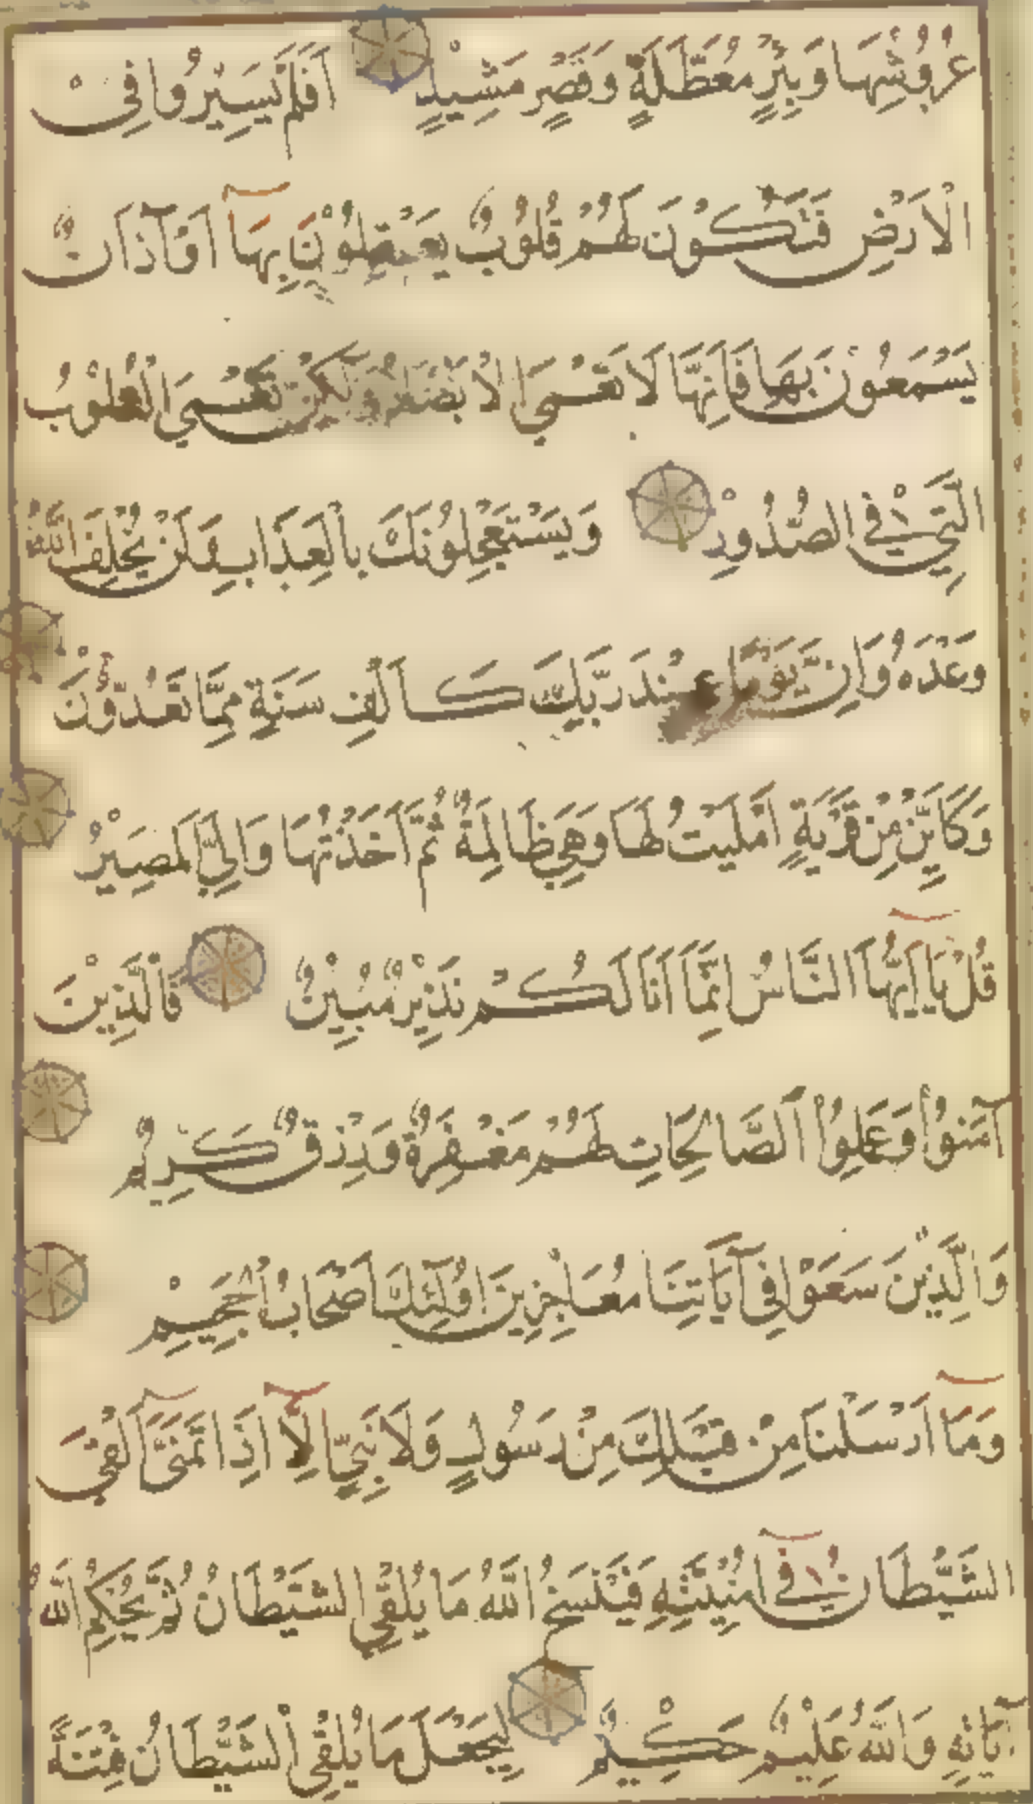 عُرُوشِهَا وَبِئْرٍ مُعَطَّلَةٍ وَقَصْرٍ مَشِيْدٍ اَفَلَمْ يَسِيْرُوا فِىْ
الْاَرْضِ فَتَكُوْنَ لَهُمْ قُلُوْبٌ يَعْقِلُوْنَ بِهَا اَوْ آذَانٌ
يَسْمَعُوْنَ بِهَا فَاِنَّهَا لَا تَعْمَى الْاَبْصَارُ وَلٰكِنْ تَعْمَى الْقُلُوْبُ
الَّتِىْ فِى الصُّدُوْرِ وَيَسْتَعْجِلُوْنَكَ بِالْعَذَابِ وَلَنْ يُخْلِفَ اللّٰهُ
وَعْدَهُ وَاِنَّ يَوْمًا عِنْدَ رَبِّكَ كَاَلْفِ سَنَةٍ مِمَّا تَعُدُّوْنَ
وَكَاَيِّنْ مِنْ قَرْيَةٍ اَمْلَيْتُ لَهَا وَهِىَ ظَالِمَةٌ ثُمَّ اَخَذْتُهَا وَاِلَىَّ الْمَصِيْرُ
قُلْ يَا اَيُّهَا النَّاسُ اِنَّمَا اَنَا لَكُمْ نَذِيْرٌ مُبِيْنٌ فَالَّذِيْنَ
آمَنُوْا وَعَمِلُوْا الصَّالِحَاتِ لَهُمْ مَغْفِرَةٌ وَرِزْقٌ كَرِيْمٌ
وَالَّذِيْنَ سَعَوْا فِى آيَاتِنَا مُعَاجِزِيْنَ اُولٰئِكَ اَصْحَابُ الْجَحِيْمِ
وَمَا اَرْسَلْنَا مِنْ قَبْلِكَ مِنْ رَسُوْلٍ وَلَا نَبِىٍّ اِلَّا اِذَا تَمَنَّى اَلْقَى
الشَّيْطَانُ فِى اُمْنِيَّتِهِ فَيَنْسَخُ اللّٰهُ مَا يُلْقِى الشَّيْطَانُ ثُمَّ يُحْكِمُ اللّٰهُ
آيَاتِهِ وَاللّٰهُ عَلِيْمٌ حَكِيْمٌ لِيَجْعَلَ مَا يُلْقِى الشَّيْطَانُ فِتْنَةً